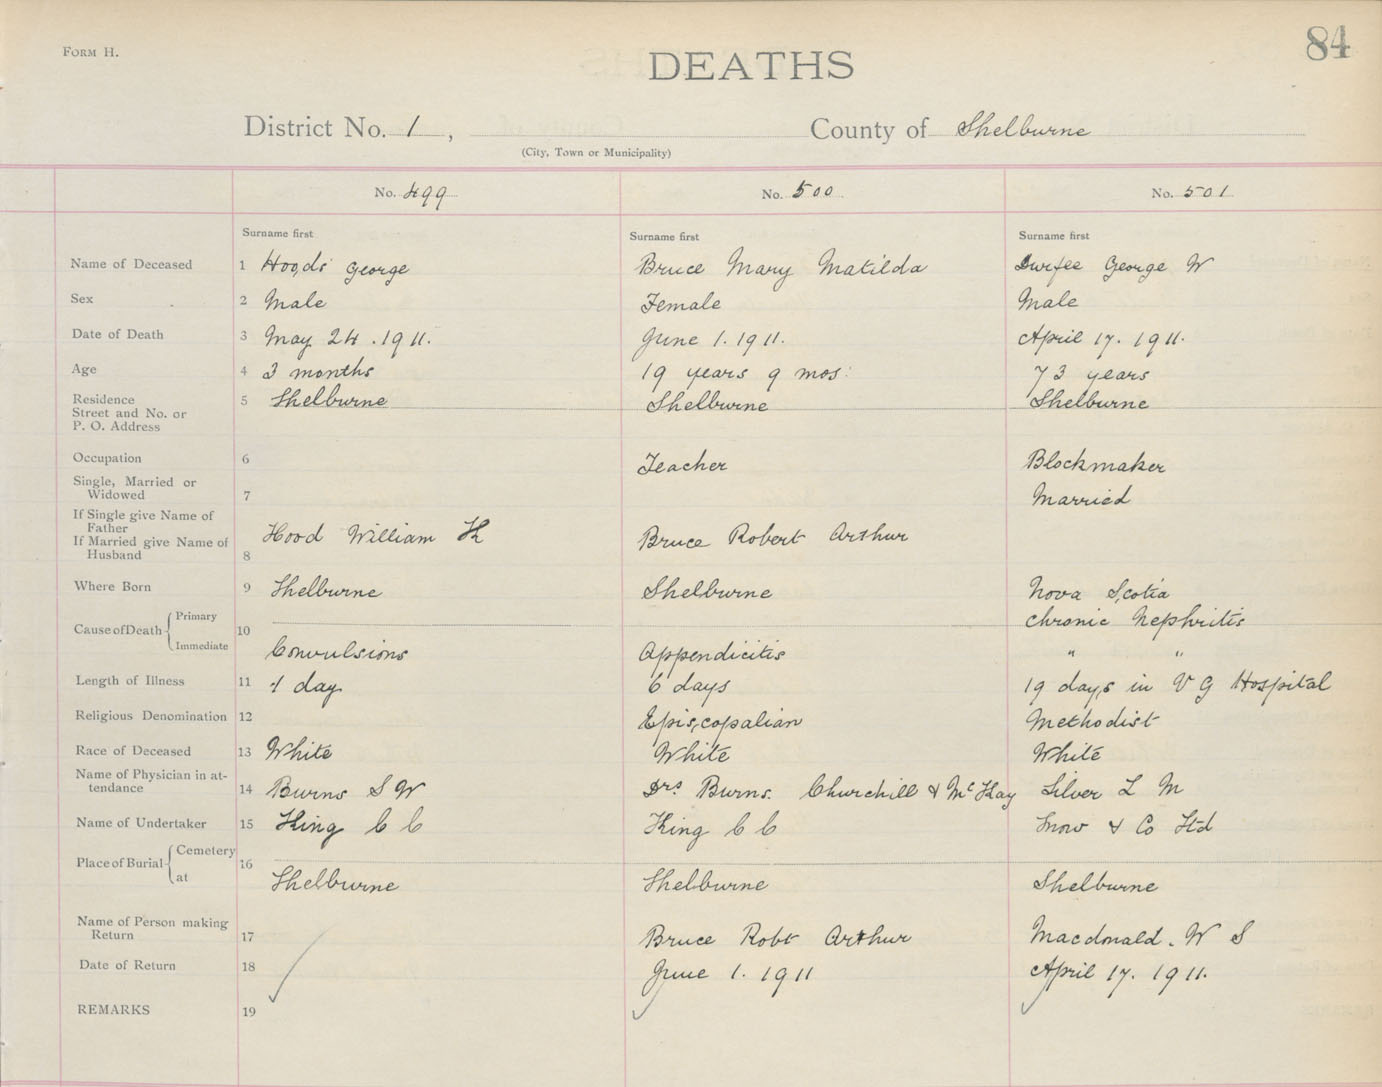 FORM H.
84
DEATHS
District No. 1, County of Shelburne
(City, Town or Municipality)
No. 499 No. 500 No. 501
Surname first Surname first Surname first
Name of Deceased 1 Hood George Bruce Mary Matilda Durfee George W
Sex 2 Male Female Male
Date of Death 3 May 24. 1911. June 1. 1911. April 17. 1911.
Age 4 3 months 19 years 9 mos: 73 years
Residence
Street and No. or
P. O. Address 5 Shelburne Shelburne Shelburne
Occupation 6 Teacher Blockmaker
Single, Married or
Widowed 7 Married
If Single give Name of
Father
If Married give Name of
Husband 8 Hood William H Bruce Robert Arthur
Where Born 9 Shelburne Shelburne Nova Scotia
Cause of Death 10 Primary Chronic Nephritis
Immediate Convulsions Appendicitis " "
Length of Illness 11 1 day 6 days 19 days in V G Hospital
Religious Denomination 12 Episcopalian Methodist
Race of Deceased 13 White White White
Name of Physician in at-
tendance 14 Burns S W Drs Burns. Churchill & McKay Silver L M
Name of Undertaker 15 King C C King C C Snow & Co Ltd
Place of Burial 16 Cemetery
at Shelburne Shelburne Shelburne
Name of Person making
Return 17 Bruce Robt Arthur Macdonald. W S
Date of Return 18 June 1. 1911 April 17. 1911.
REMARKS 19